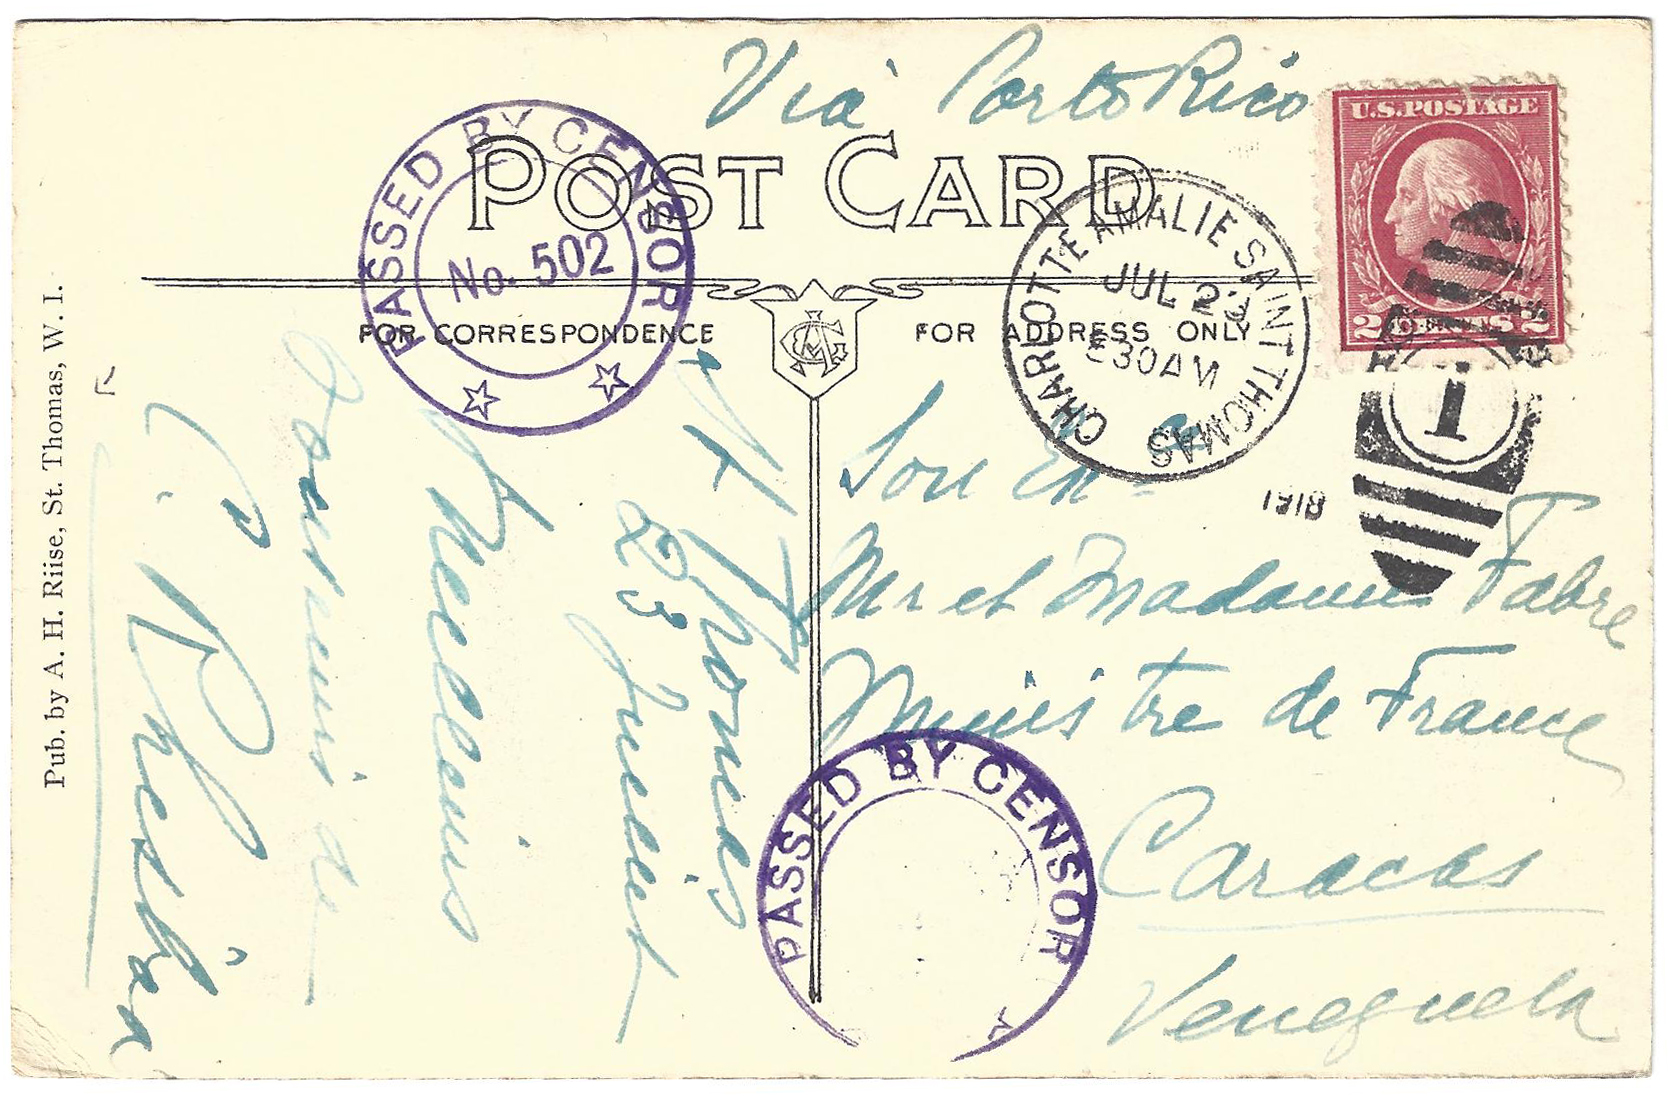 Via Porto Rico
U.S. POSTAGE
2 CENTS 2
POST CARD
PASSED BY CENSOR
No. 502
CHARLOTTE AMALIE SAINT THOMAS
JUL 23
30 AM
1918
1
FOR CORRESPONDENCE
FOR ADDRESS ONLY
Son Ex.
Mr et Madame Fabre
Ministre de France
Caracas
Venezuela
PASSED BY CENSOR
St Thomas
23 Juillet
Meilleurs
souvenirs de
Pub. by A. H. Riise, St. Thomas, W. I.